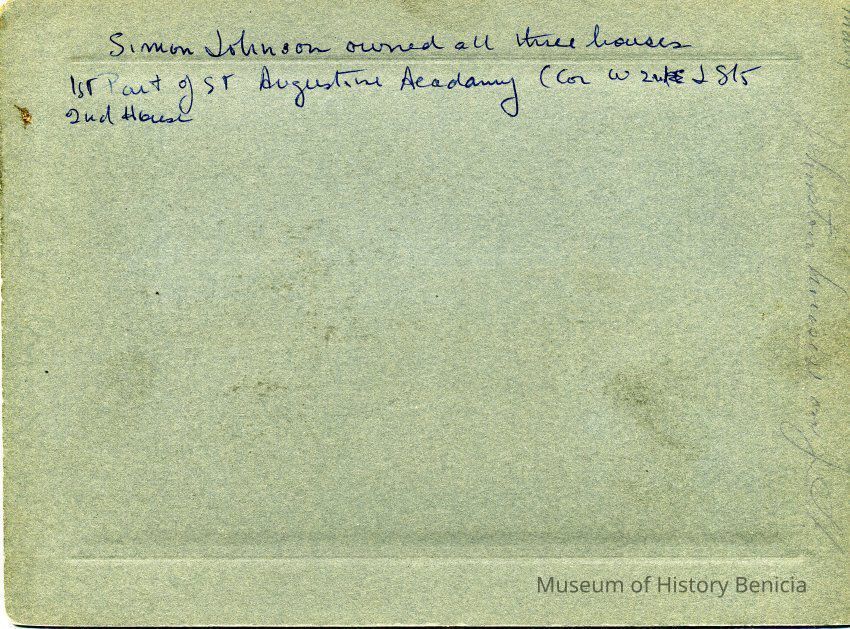 Simon Johnson owned all three houses
1st Part of St Augustine Acadamy (Cor W 2nd & J Sts
2nd House
Museum of History Benicia